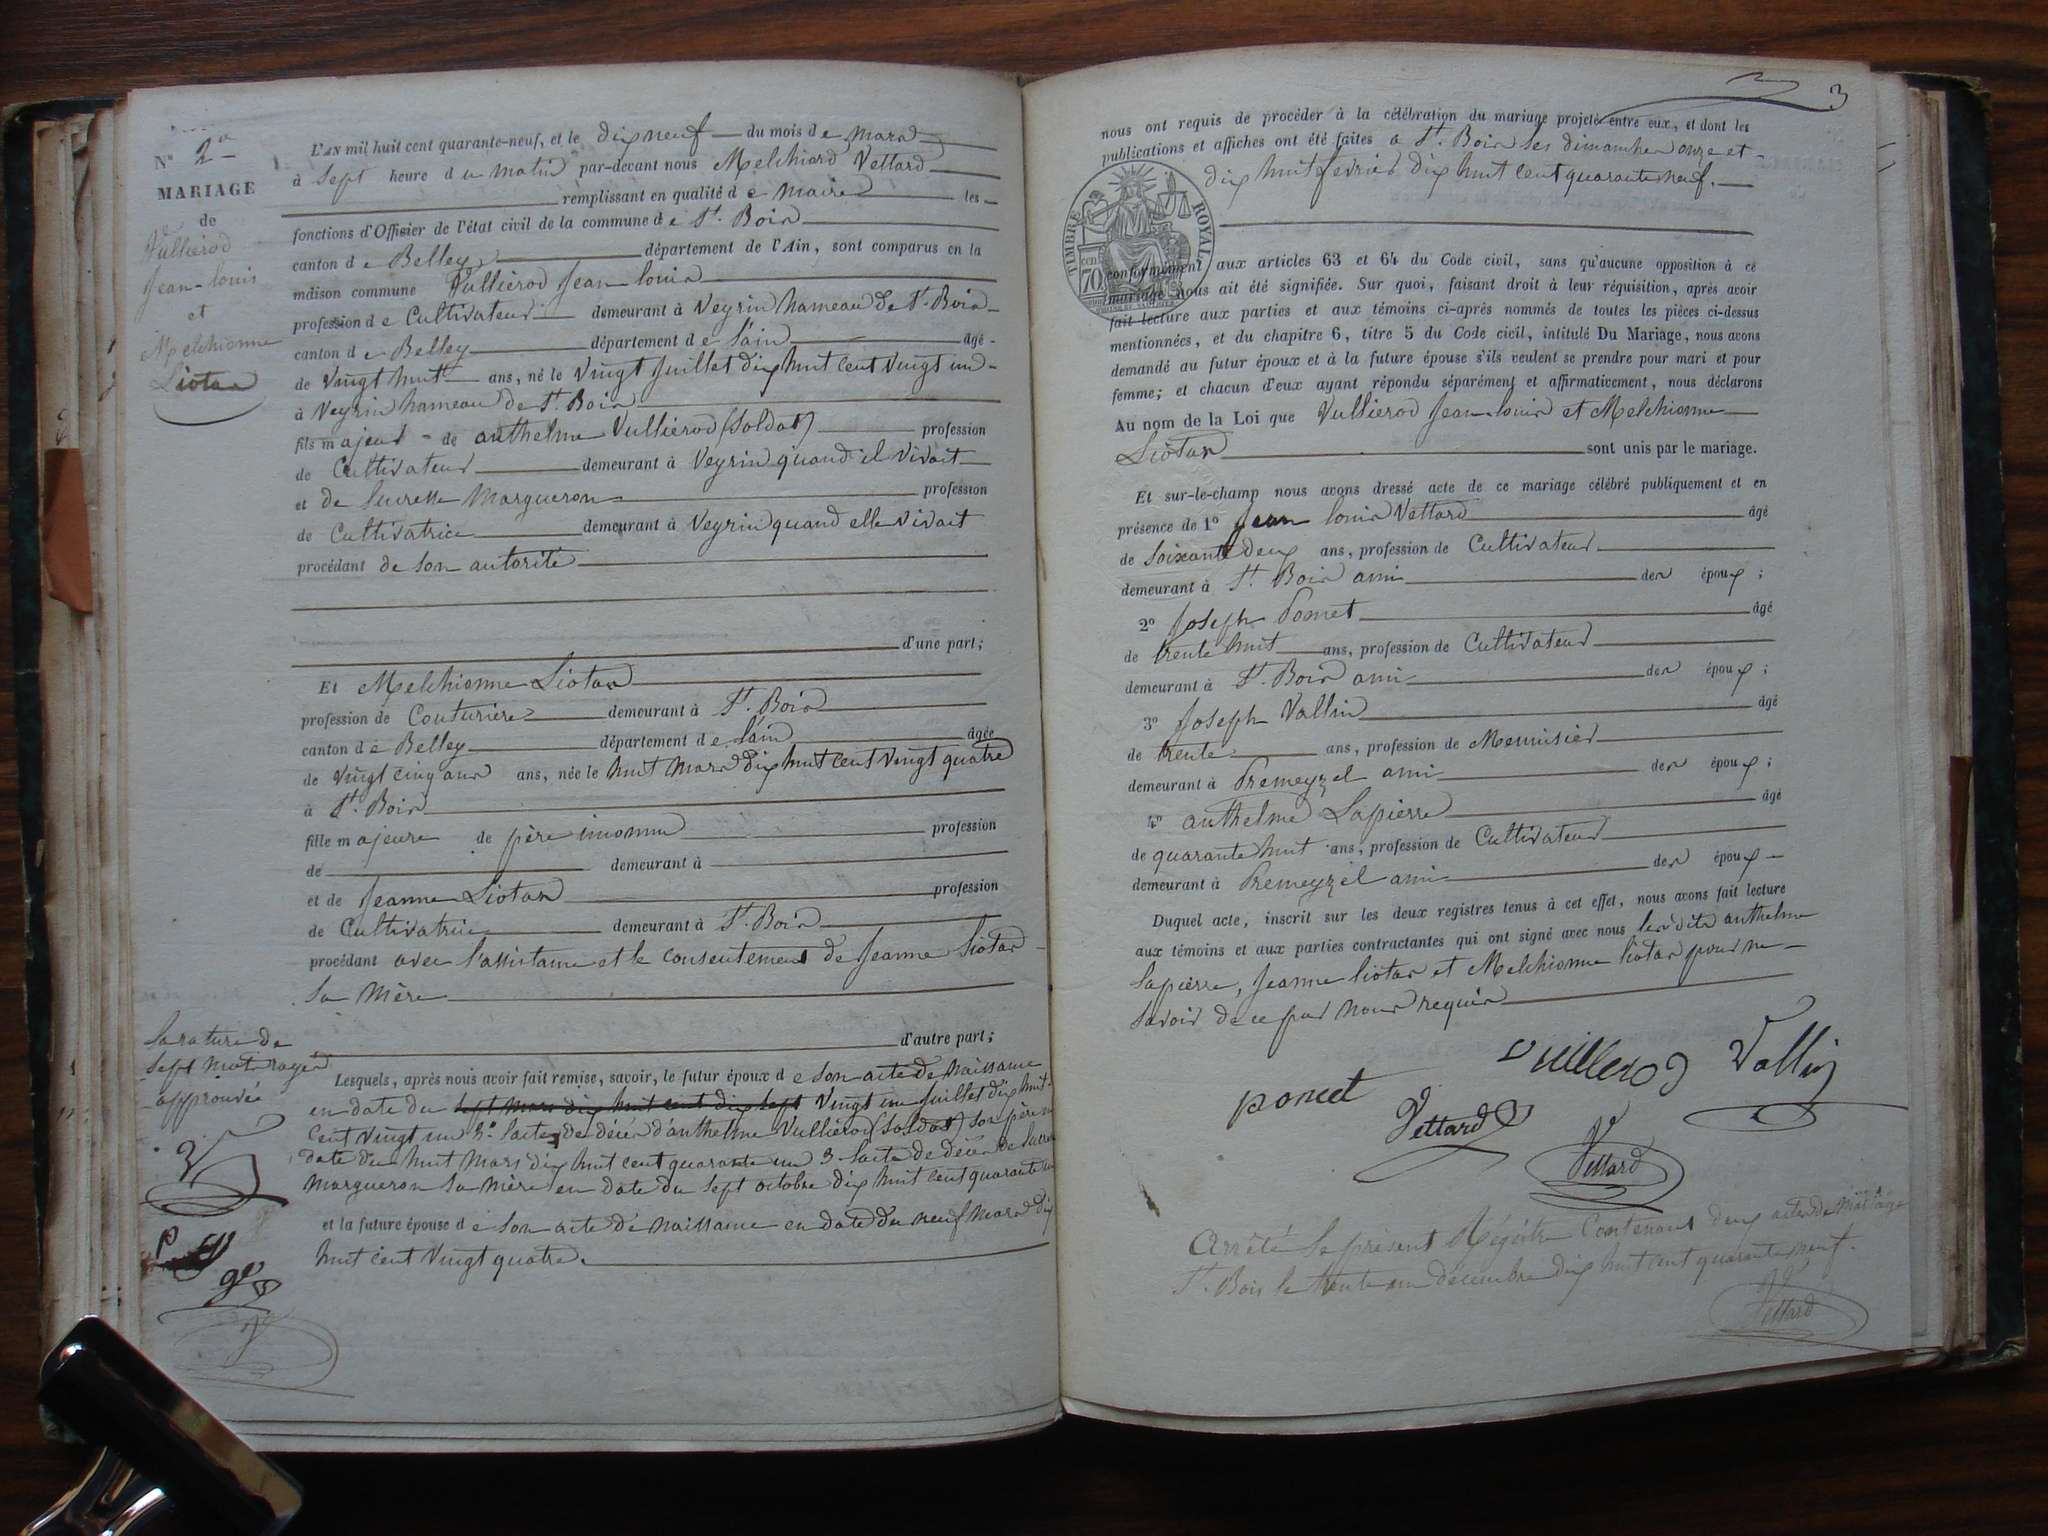 N° 2
MARIAGE
de
Vullierod
Jean-louis
et
Melchionne
Liotar
L'AN mil huit cent quarante-neuf, et le dix neuf du mois de mars
à sept heure du matin par-devant nous Melchiord Vettard
remplissant en qualité de maire les
fonctions d'Officier de l'état civil de la commune de St. Bois
canton de Belley département de l'Ain, sont comparus en la
maison commune Vullierod Jean louis
profession de Cultivateur demeurant à Veyrin hameau de St. Bois
canton de Belley département de l'ain âgé
de vingt huit ans, né le vingt juillet dix huit cent vingt un
à Veyrin hameau de St. Bois
fils majeur de anthelme Vullierod (soldat) profession
de Cultivateur demeurant à Veyrin quand il vivait
et de Margueron profession
de Cultivatrice demeurant à Veyrin quand elle vivait
procédant de son autorité
d'une part;
Et Melchionne Liotar
profession de Couturière demeurant à St. Bois
canton de Belley département de l'ain âgée
de vingt cinq ans ans, née le huit mars dix huit cent vingt quatre
à St. Bois
fille majeure de père inconnu profession
de demeurant à
et de Jeanne Liotar profession
de Cultivatrice demeurant à St. Bois
procédant avec l'assistance et le consentement de Jeanne Liotar
sa mère
d'autre part;
La rature de
sept mots rayés
approuvée
Lesquels, après nous avoir fait remise, savoir, le futur époux de son acte de naissance
en date du sept mars dix huit cent dix sept vingt un juillet dix huit
cent vingt un 2° l'acte de décès d'anthelme Vullierod (soldat) son père en
date du huit mars dix huit cent quarante un 3 l'acte de décès de
Margueron sa mère en date du sept octobre dix huit cent quarante un
et la future épouse de son acte de naissance en date du neuf mars dix
huit cent vingt quatre.
3
nous ont requis de procéder à la célébration du mariage projeté entre eux, et dont les
publications et affiches ont été faites à St. Bois les dimanches onze et
dix huit fevrier dix huit cent quarante neuf.
TIMBRE ROYAL
cen
70
conformément aux articles 63 et 64 du Code civil, sans qu'aucune opposition à ce
mariage nous ait été signifiée. Sur quoi, faisant droit à leur réquisition, après avoir
fait lecture aux parties et aux témoins ci-après nommés de toutes les pièces ci-dessus
mentionnées, et du chapitre 6, titre 5 du Code cicil, intitulé Du Mariage, nous avons
demandé au futur époux et à la future épouse s'ils veulent se prendre pour mari et pour
femme; et chacun d'eux ayant répondu séparément et affirmaticement, nous déclarons
Au nom de la Loi que Vullierod Jean-louis et Melchionne
Liotar sont unis par le mariage.
Et sur-le-champ nous avons dressé acte de ce mariage célébré publiquement et en
présence de 1° Jean louis Vettard âgé
de soixante deux ans, profession de Cultivateur
demeurant à St. Bois ami des époux;
2° Joseph Ponet âgé
de trente huit ans, profession de Cultivateur
demeurant à St. Bois ami des époux;
3° Joseph Vallin âgé
de trente ans, profession de Menuisier
demeurant à Premeyzel ami des époux;
4° anthelme Lapierre âgé
de quarante huit ans, profession de Cultivateur
demeurant à Premeyzel ami des époux
Duquel acte, inscrit sur les deux registres tenus à cet effet, nous avons fait lecture
aux témoins et aux parties contractantes qui ont signé avec nous les dits anthelme
Lapierre, Jeanne liotar et Melchionne liotar pour ne
savoir de ce par nous requis
Vuillerod Vallin
poncet
Vettard
Vettard
Arrêté le present Régistre Contenant deux actes de Mariage
St. Bois le trente un décembre dix huit cent quarante neuf.
Vettard